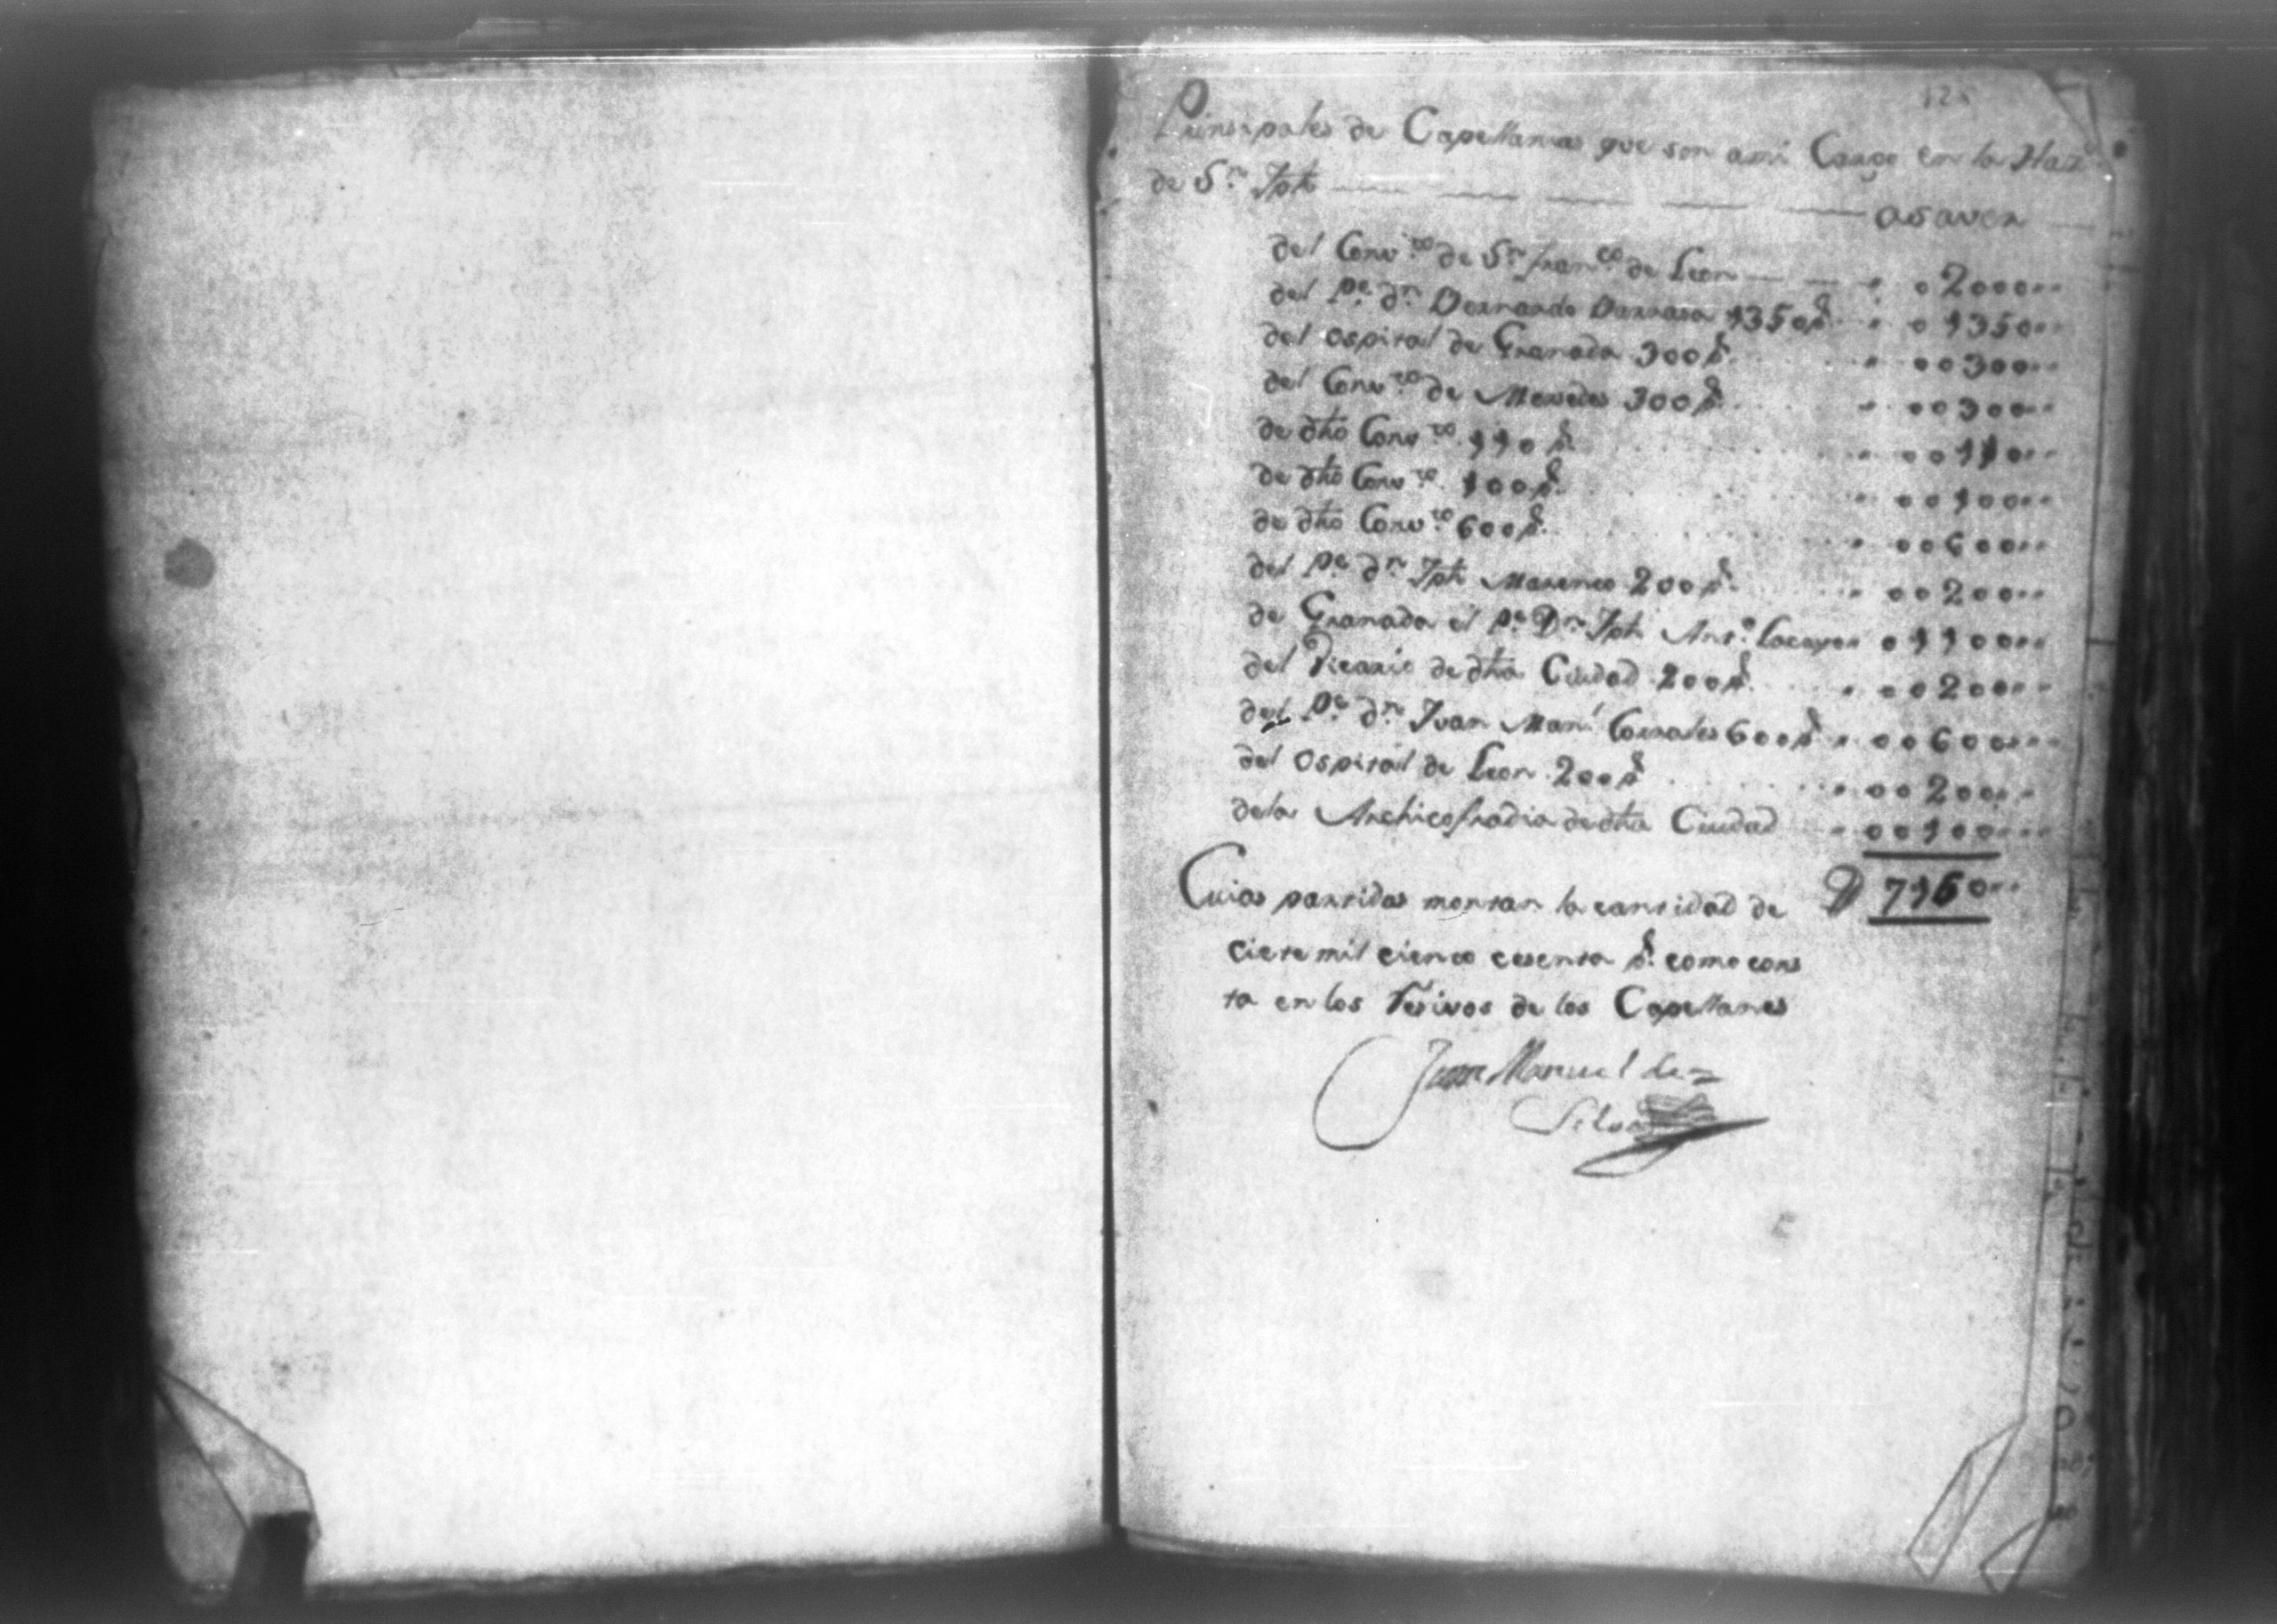 Prinsipales de Capellanias que son ami Cargo en la Haz.da
de S.n Jph — — — — asaver
del Conv.to de S.n Fran.co de Leon — — 0 2000
del P.e d.n Bernardo Barrasa 1350 p.s 0 1350
del ospital de Granada 300 p.s 00300
del Conv.to de Mersedes 300 p.s 00300
de dho Conv.to 110 p.s 00110
de dho Conv.to 100 p.s 00100
de dho Conv.to 600 p.s 00600
del P.e d.n Jph Marenco 200 p.s 00200
de Granada el P.e D.n Jph Ant.o Lacayo 01100
del Vicario de dha Ciudad 200 p.s 00200
del P.e d.n Juan Man.l Corrales 600 p.s 00600
del ospital de Leon 200 p.s 00200
dela Archicofradia de dha Ciudad 00100
Cuias partidas montan la cantidad de 7160
ciete mil ciento cesenta p.s como cons
ta en los resivos de los Capellanes
Juan Manuel de
Selva